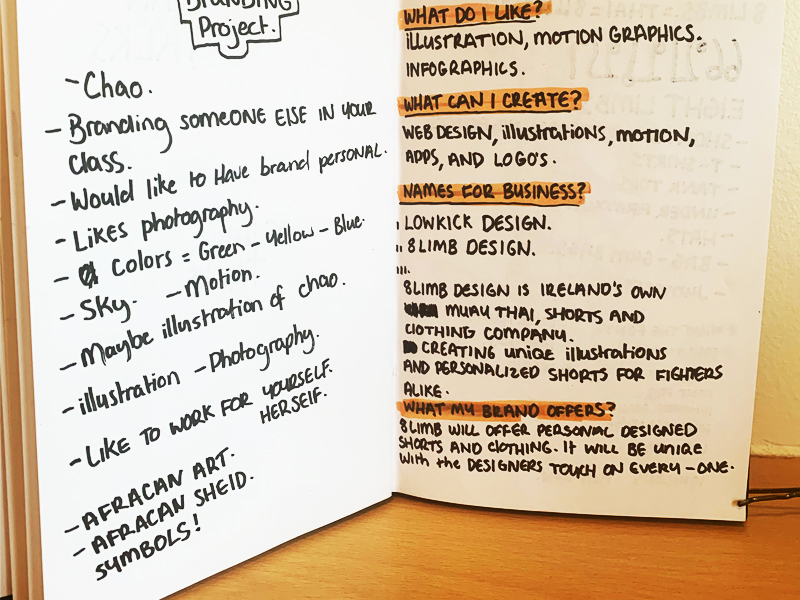 BRANDING
Project.
- Chao.
- Branding someone ELSE IN YOUR
class.
- Would like to Have brand personal.
- Likes photography.
- Colors = Green - Yellow - Blue.
- Sky. - Motion.
- Maybe illustration of chao.
- illustration - Photography.
- LIKE TO WORK FOR YOURSELF.
HERSELF.
- AFRACAN ART.
- AFRACAN SHEID.
SYMBOLS!
WHAT DO I LIKE?
illUSTRATION, MOTION GRAPHICS.
INFOGRAPHICS.
WHAT CAN I CREATE?
WEB DESIGN, illustrations, MOTION,
APPS, AND LOGO'S.
NAMES FOR BUSINESS?
LOWKICK DESIGN.
8 LIMB DESIGN.
8LIMB DESIGN IS IRELAND'S OWN
MUAY THAI, SHORTS AND
ClOTHING COMPANY.
CREATING UNIQE illUSTRATIONS
AND PERSONALIZED SHORTS FOR FIGHTERS
ALIKE.
WHAT MY BRAND OFFERS?
8LIMB WILL OFFER PERSONAL DESIGNED
SHORTS AND ClOTHING. It WILL BE UNIQE
With the DESIGNERS TOUCH ON EVERY-ONE.